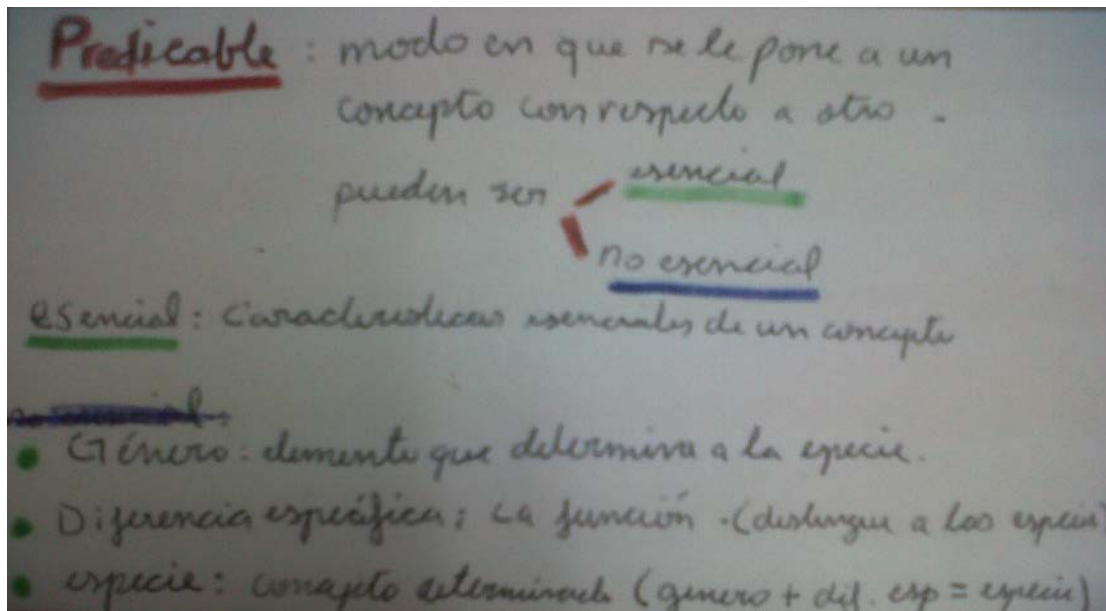 Predicable: modo en que se le pone a un
concepto con respecto a otro.
pueden ser
esencial
no esencial
esencial: Características esenciales de un concepto
Género: elemento que determina a la especie.
Diferencia específica: La función. (distingue a las especies)
especie: concepto determinado (genero + dif. esp = especie)